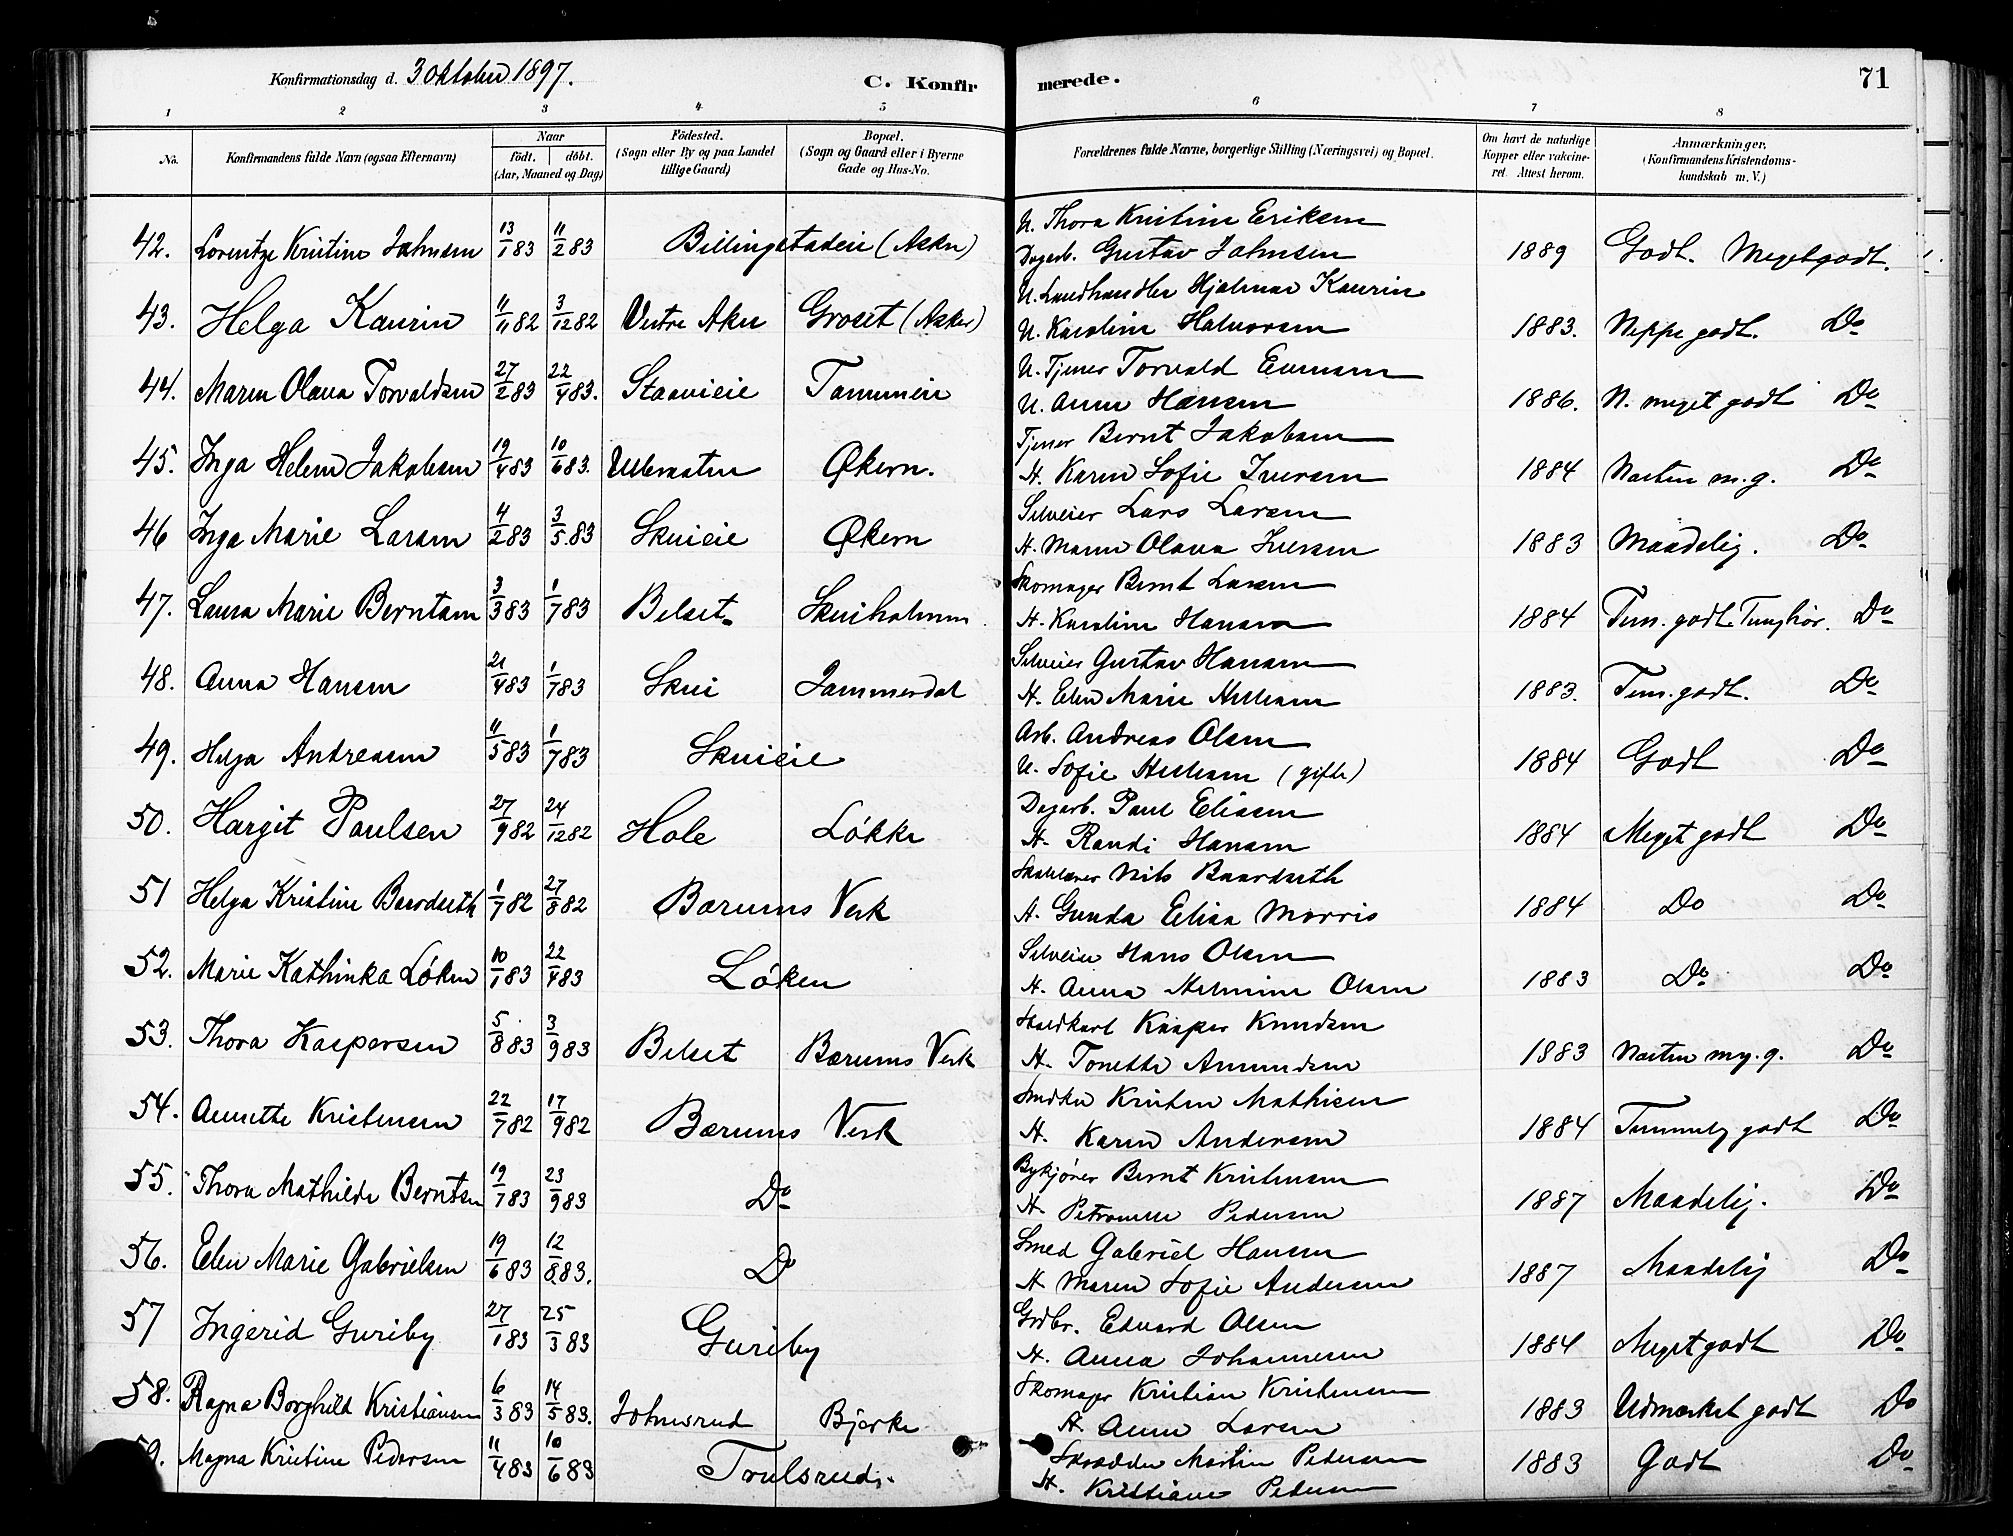 Konfirmationsdag d. 3 Oktober 1897.
C. Konfirmerede.
71
1 2 3 4 5 6 7 8
No. Konfirmandens fulde Navn (ogsaa Efternavn) Naar født. døbt. (Aar, Maaned og Dag) Födested. (Sogn eller By og paa Landet tillige Gaard) Bopæl. (Sogn og Gaard eller i Byerne Gade og Hus-No. Forældrenes fulde Navne, borgerlige Stilling (Næringsvei) og Bopæl. Om havt de naturlige Kopper eller vakcineret. Attest herom. Anmærkninger. (Konfirmandens Kristendomskundskab m. V.)
U. Thora Kristine Eriksen
42. Lorentze Kristine Jahnsen 13/1 83 11/2 83 Billingstadeie (Asker) Dagarb. Gustav Jahnsen 1889 Godt. Megetgodt.
U. Landhandler Hjalmar Kaurin
43. Helga Kaurin 11/11 82 3/12 82 Vestre Aker Groset (Asker) U. Karoline Halvorsen 1883. Neppe godt. Do
U. Tjener Torvald Evensen
44. Maren Olava Torvaldsen 27/2 83 22/4 83. Staavieie Tanumeie U. Anne Hansen 1886. N. meget godt Do
Tjener Bernt Jakobsen
45. Inga Helene Jakobsen 19/4 83 10/6 83. Økern. H. Karen Sofie Iversen 1884 Næsten m.g. Do
Selveier Lars Larsen
46 Inga Marie Larsen 4/2 83 3/5 83 Skuieie Økern H. Maren Olava Iversen 1883 Maadelig. Do
Skomager Bernt Larsen
47. Laura Marie Berntsen 3/3 83 1/7 83 Belset Skuiholmen H. Karoline Hansen 1884 Tem. godt. Tunghør. Do
Selveier Gustav Hansen
48. Anna Hansen 21/4 83 1/7 83 Skui Jammerdal H. Elen Marie Nilsen 1883. Tem. godt. Do
Arb. Andreas Olsen
49. Helga Andreasen 11/5 83 1/7 83 Skuieie U. Sofie Nilsen (gifte) 1884 Godt Do
Dagarb. Paul Eliasen
50. Hargit Paulsen 27/9 82 24/12 82 Hole Løkke H. Randi Hansen 1884 Meget godt Do
Skolelærer Nils Baardseth
51 Helga Kristine Baardseth 1/7 82 27/8 82 Bærums Verk H. Gunda Elisa Morris 1884 Do Do
Selveier Hans Olsen
52. Marie Kathinka Løken 10/1 83 22/4 83 Løken H. Anna Helmine Olsen 1883 Do Do
Kasper Knudsen
53. Thora Kaspersen 5/8 83 3/9 83 Belset Bærums Verk H. Tonette Amundsen 1883 Næsten meg. g. Do
Kristen Mathisen
54. Annette Kristensen 22/7 82 17/9 82 Bærums Verk H. Karen Andersen 1884 Temmelig godt Do
Bykjører Bernt Kristensen
55. Thora Mathilde Berntsen 19/7 83 23/9 83 Do H. Petronelle Pedersen 1887 Maadelig. Do
Smed Gabriel Hansen
56. Elen Marie Gabrielsen 19/6 83 12/8 83. Do H. Maren Sofie Andersen 1887 Maadelig Do
Grdbr. Edvard Olsen
57 Ingerid Guriby 27/1 83 25/3 83 Guriby H. Anna Johannesen 1884 Meget godt Do
Skomager Kristian Kristensen
58. Ragna Borghild Kristiansen 6/3 83 14/5 83. Johnsrud Bjerke H. Anne Larsen 1883 Udmærket godt Do
Skrædder Martin Pedersen
59. Magna Kristine Pedersen 11/4 83 10/6 83 Trulsrud. H. Kristiane Pedersen 1883 Godt Do